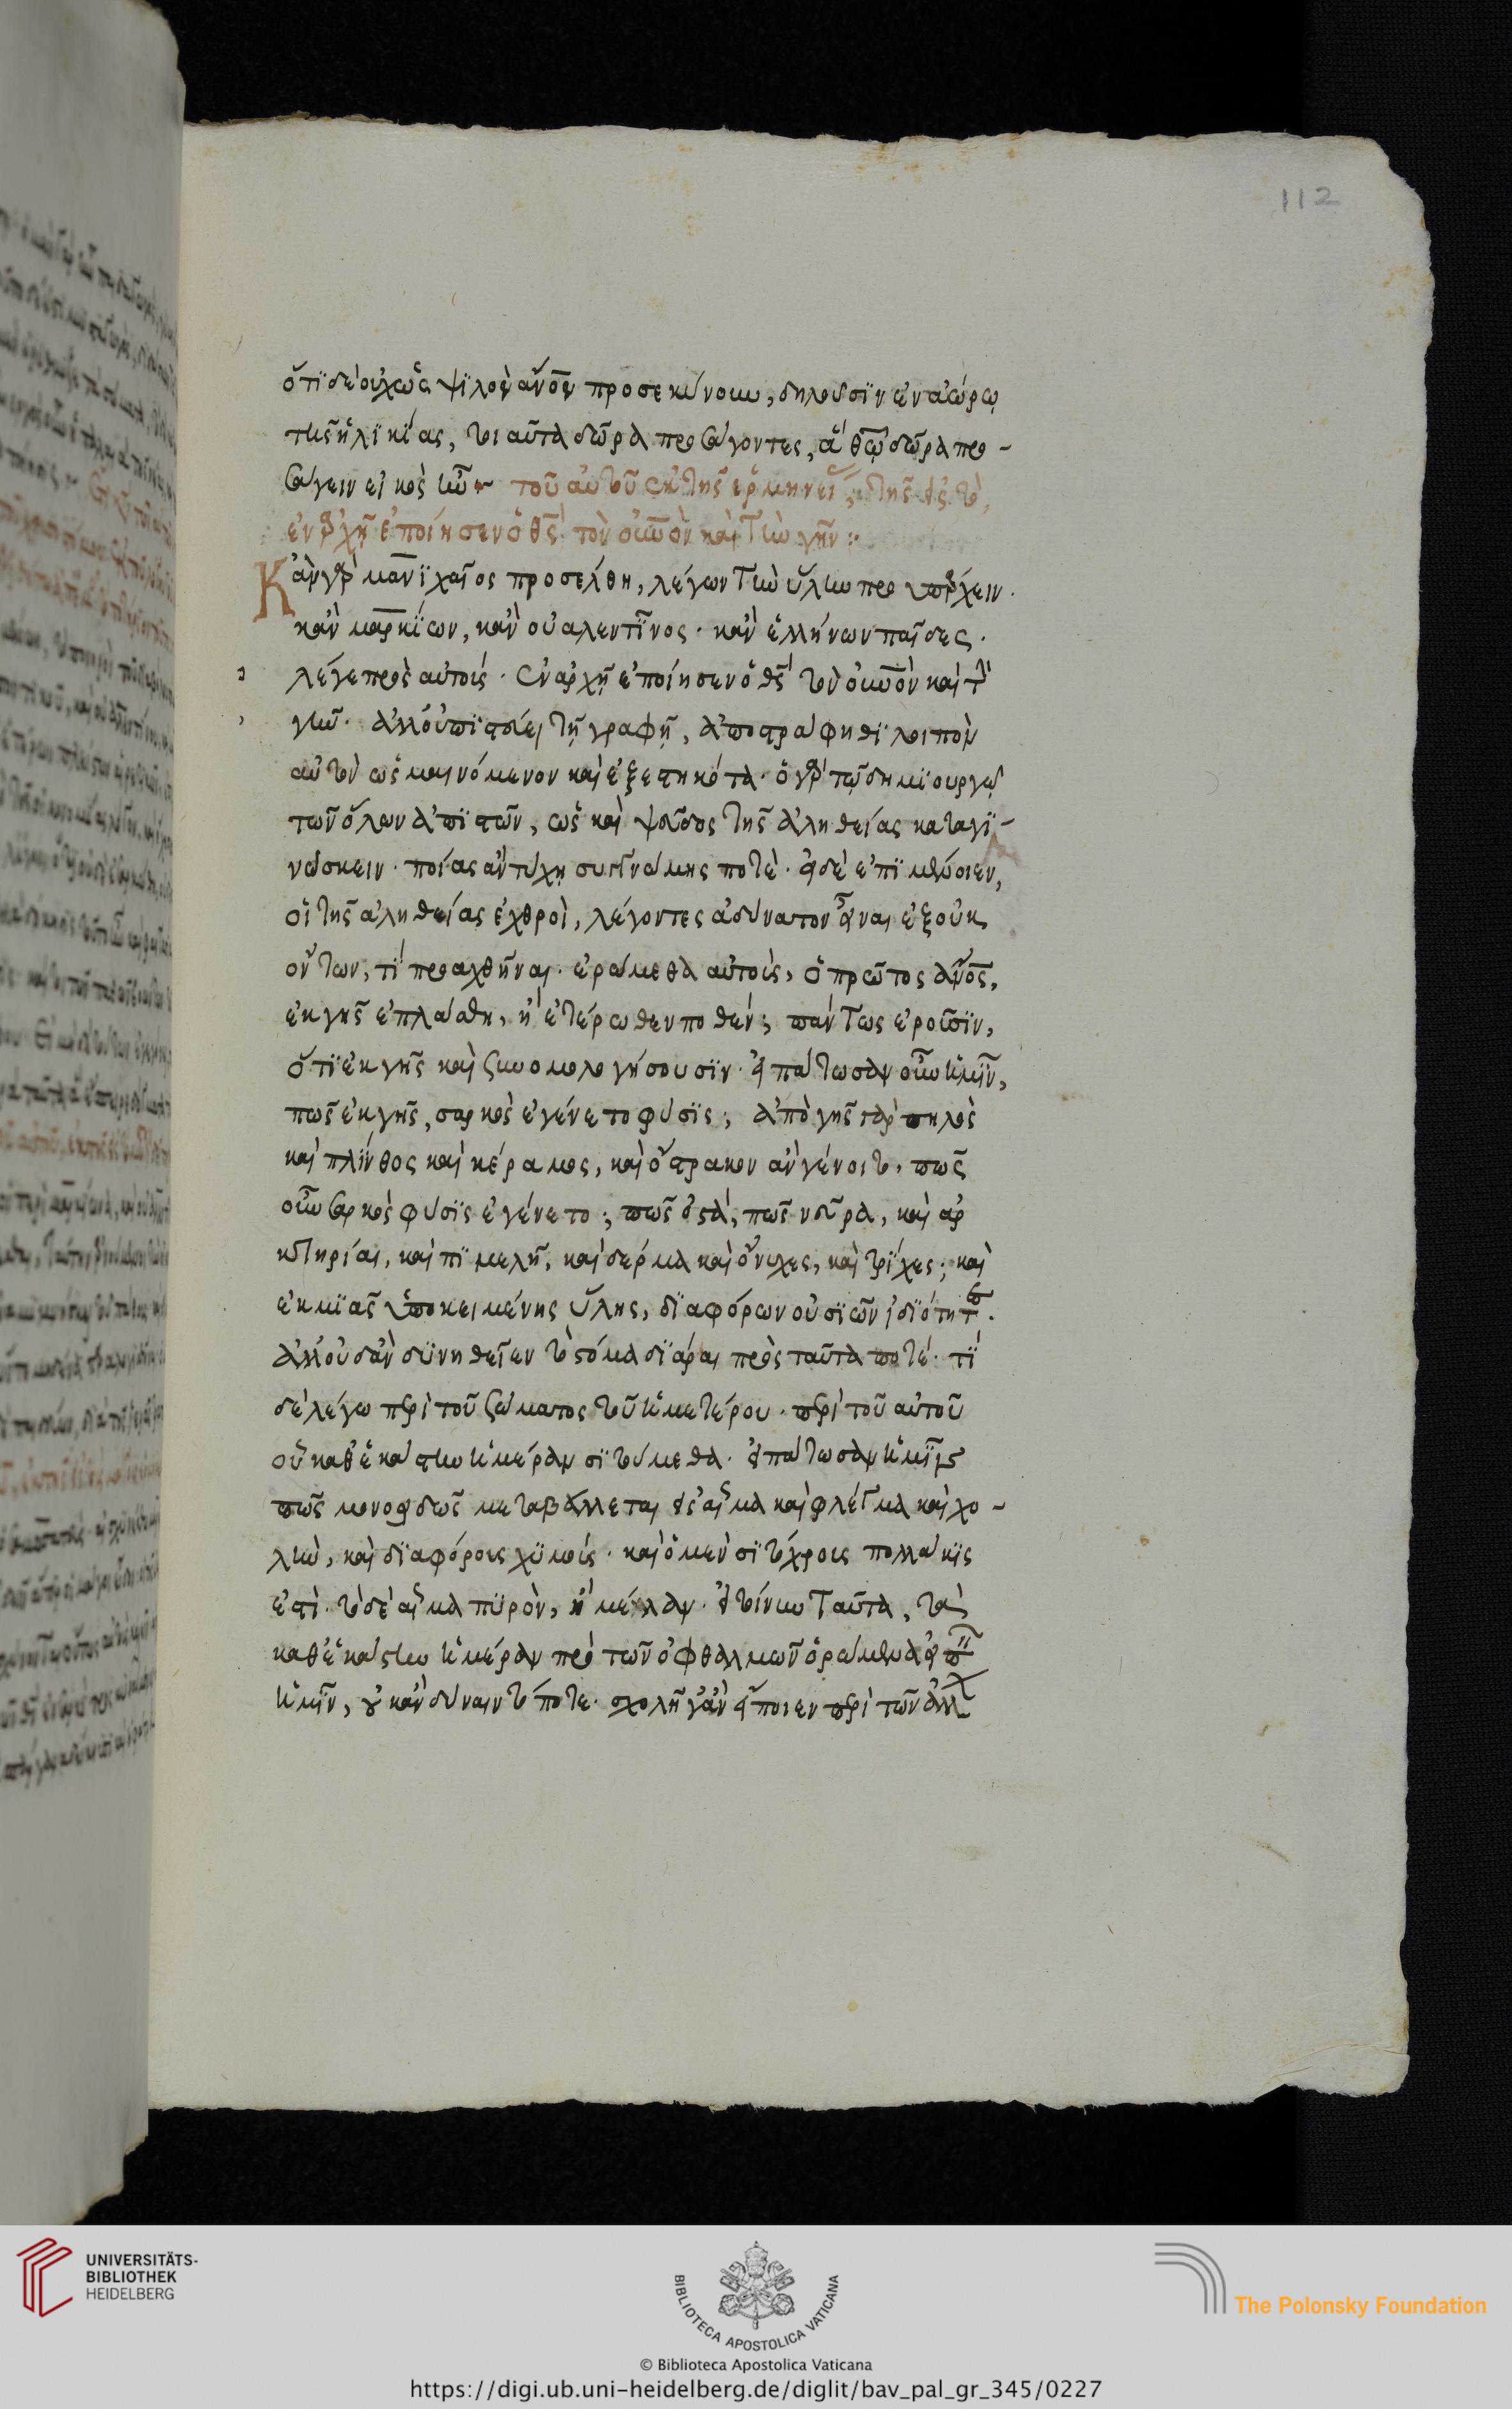 112
ὅτϊ δὲ οὐχ ὡς ψϊλὸν ἄνον προσεκύνουν, δηλοῦσϊν ἐν ἀώρω
τῆς ἡλϊκίας, τοιαῦτα δῶρα προσάγοντες, ἃ θῶ δῶρα προ-
σάγειν εἰκὸς ἦν τοῦ αὐτοῦ ἐκ τῆς ἑρμηνεί τῆς εἰς τὸ,
ἐν ἀρχῆ ἐποίησεν ὁ θς τὸν οὐνον καὶ τὴν γῆν:
Κἂν γὰρ μανϊχαῖος προσέλθη, λέγων τὴν ὕλην προϋπάρχειν.
κἂν μαρκϊων, κἂν οὐαλεντῖνος. κἂν ἑλλήνων παῖδες.
λέγε πρὸς αὐτούς. ἐν ἀρχῆ ἐποίησεν ὁ θς τὸν οὐνον καὶ τὴν
γῆν. ἀλλ' οὐ πϊστεύει τῆ γραφῆ, ἀποστράφηθϊ λοιπὸν
αὐτὸν ὡς μαινόμενον καὶ ἐξεστηκότα. ὁ γὰρ τῶ δημϊουργῶ
τῶν ὅλων ἀπϊστῶν, ὡς καὶ ψεῦδος τῆς ἀληθείας καταγϊ-
νώσκειν. ποίας ἂν τύχη συγγνώμης ποτέ. εἰ δὲ ἐπϊμένοιεν,
οἱ τῆς ἀληθείας ἐχθροὶ, λέγοντες ἀδύνατον εἶναι ἐξ οὐκ
ὄντων, τὶ πραχθῆναι. ἐρώμεθα αὐτούς, ὁ πρῶτος ἄνος,
ἐκ γῆς ἐπλάσθη, ἢ ἑτέρωθεν ποθέν; πάντως ἐροῦσϊν,
ὅτϊ ἐκ γῆς καὶ συνομολογήσουσϊν. εἰπάτωσαν οὖν ἡμῖν,
πῶς ἐκ γῆς, σαρκὸς ἐγένετο φύσϊς; ἀπὸ γῆς γὰρ πηλὸς
καὶ πλίνθος καὶ κέραμος, καὶ ὄστρακον ἂν γένοιτο. πῶς
οὖν σαρκὸς φύσϊς ἐγένετο; πῶς ὀστὰ, πῶς νεῦρα, καὶ ἀρ
τηρίαι, καὶ πϊμελὴ, καὶ δέρμα καὶ ὄνυχες, καὶ τρίχες; καὶ
ἐκ μϊᾶς ὑποκειμένης ὕλης, δϊαφόρων οὐσϊῶν ἰδϊότητ.
ἀλλ' οὐδ' ἂν δϋνηθεῖεν τὸ στόμα δϊᾶραι πρὸς ταῦτα ποτέ. τϊ
δὲ λέγω περὶ τοῦ σώματος τοῦ ἡμετέρου. περὶ τοῦ αὐτοῦ
οὗ καθ' ἑκάστην ἡμέραν σϊτούμεθα. εἰπάτωσαν ἡμῖν
πῶς μονοειδῶς μεταβάλλεται εἰς αἷμα καὶ φλέγμα καὶ χο-
λὴν, καὶ δϊαφόρους χϋμούς. καὶ ὁ μὲν σϊτόχρους πολλάκϊς
ἐστὶ. τὸ δὲ αἷμα πϋρὸν, ἢ μέλαν. εἰ τοίνυν ταῦτα, τὰ
καθ' ἑκάστην ἡμέραν πρὸ τῶν ὀφθαλμῶν ὁρώμενα εἰπεῖν
ἡμῖν, οὐκ ἂν δύναιντό ποτε. σχολῆ γ' ἂν εἴποιεν περὶ τῶν ἀλλ
UNIVERSITÄTS-
BIBLIOTHEK
HEIDELBERG
BIBLIOTECA APOSTOLICA VATICANA
The Polonsky Foundation
© Biblioteca Apostolica Vaticana
https://digi.ub.uni-heidelberg.de/diglit/bav_pal_gr_345/0227